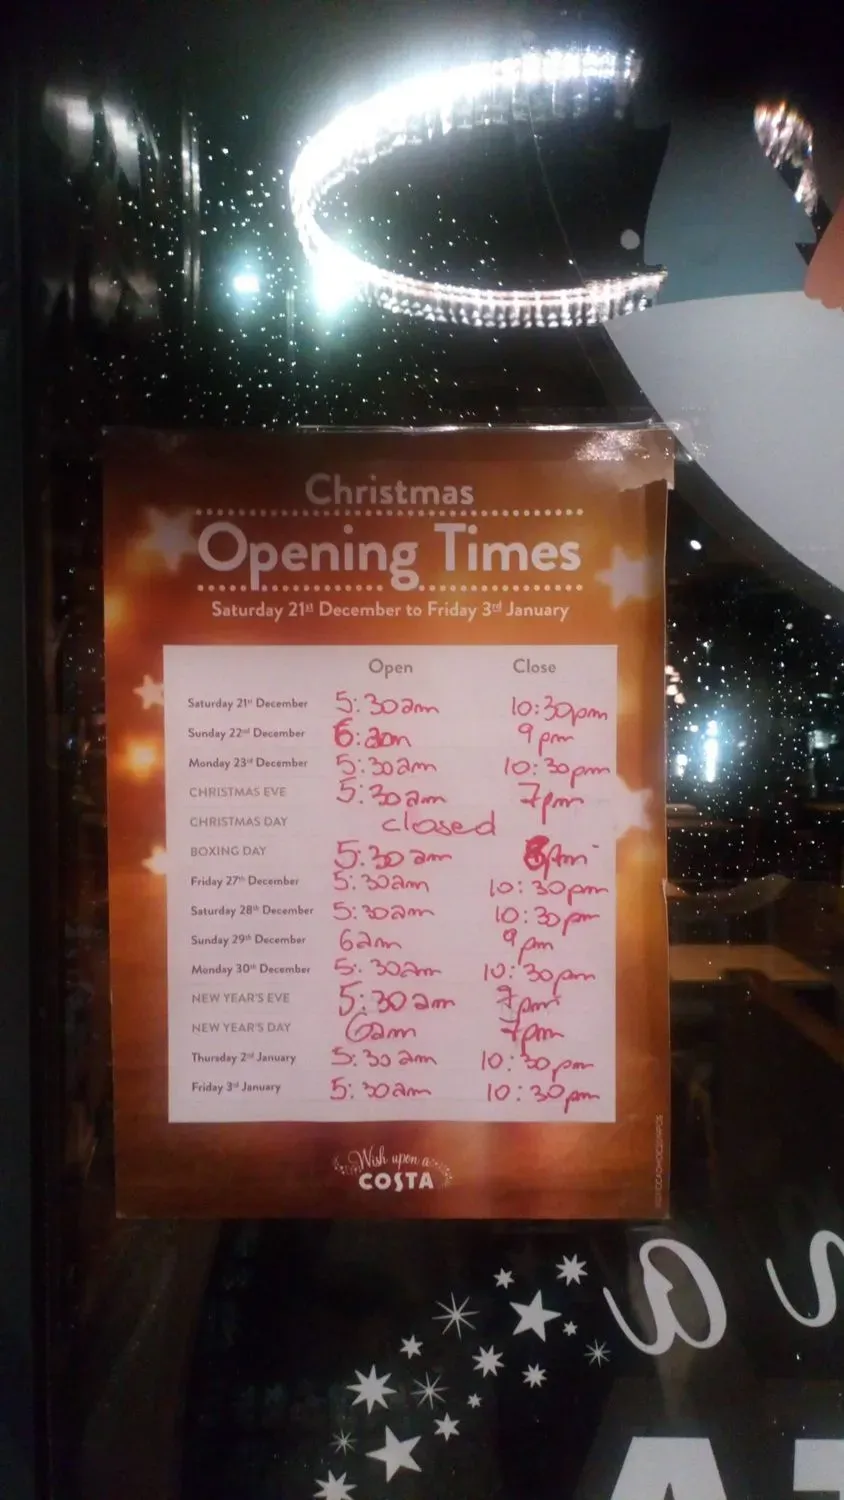 Christmas
Opening Times
Saturday 21st December to Friday 3rd January
Open Close
Saturday 21st December 5:30am 10:30pm
Sunday 22nd December 6:am 9pm
Monday 23rd December 5:30am 10:30pm
CHRISTMAS EVE 5:30am 7pm
CHRISTMAS DAY closed
BOXING DAY 5:30am
Friday 27th December 5:30am 10:30pm
Saturday 28th December 5:30am 10:30pm
Sunday 29th December 6am 9pm
Monday 30th December 5:30am 10:30pm
NEW YEAR'S EVE 5:30am 7pm
NEW YEAR'S DAY 6am 7pm
Thursday 2nd January 5:30am 10:30pm
Friday 3rd January 5:30am 10:30pm
Wish upon a
COSTA
a